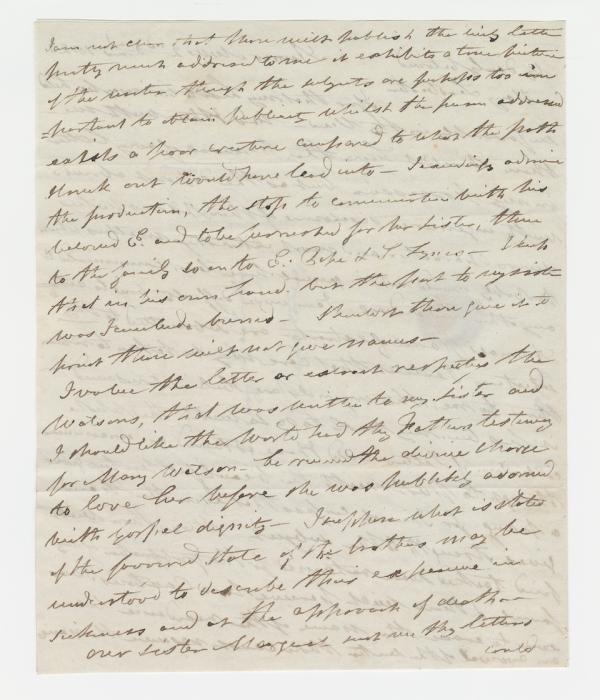 I am not clear that thou wilt publish the lines latter
pretty much addressed to me it exhibits a true picture
of the writer though the subjects are perhaps too im
portant to obtain publicity whilst the person addressed
exhibits a poor creature compared to what the path
struck out would have lead into — I exceedingly admire
the production, the stops to commemorate with his
beloved E and to be furnished for her sister, then
to the family so on to E: Pope & S. Lynes — I keep
that in his own hand but the part to my sister
was I conclude burned — Shouldst thou give it to
print thou wilt not give names —
I value the letter or extract respecting the
Watsons, that was written to my sister and
I should like the world had thy Fathers testimony
for Mary Watson — he received the divine charge
to love her before she was publickly adorned
with Gospel dignity — I suppose what is stated
of the favoured state of the brothers may be
understood to describe their experience in
sickness and at the approach of death —
Our sister Margaret sent me thy letters
could